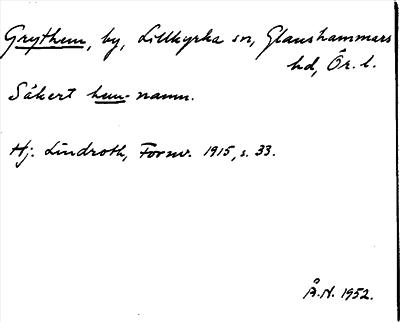 Grythem, by, Lillkyrka sn, Glanshammars
hd, Ör. l.
Säkert hem-namn.
Hj. Lindroth, Fornv. 1915, s. 33.
Å.N. 1952.